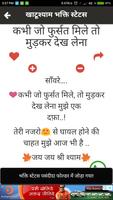 खाटूश्याम भक्ति स्टेटस
कभी जो फुर्सत मिले तो
मुड़कर देख लेना
साँवरे....
कभी जो फुर्सत मिले तो
मुड़कर देख लेना मुझे एक
दफ़ा..
तेरी नजरो से घायल होने की
चाहत मुझे आज भी है ..
जय जय श्री श्याम
भक्ति स्टेटस पसंदीदा फोल्डर में जोड़ा गया